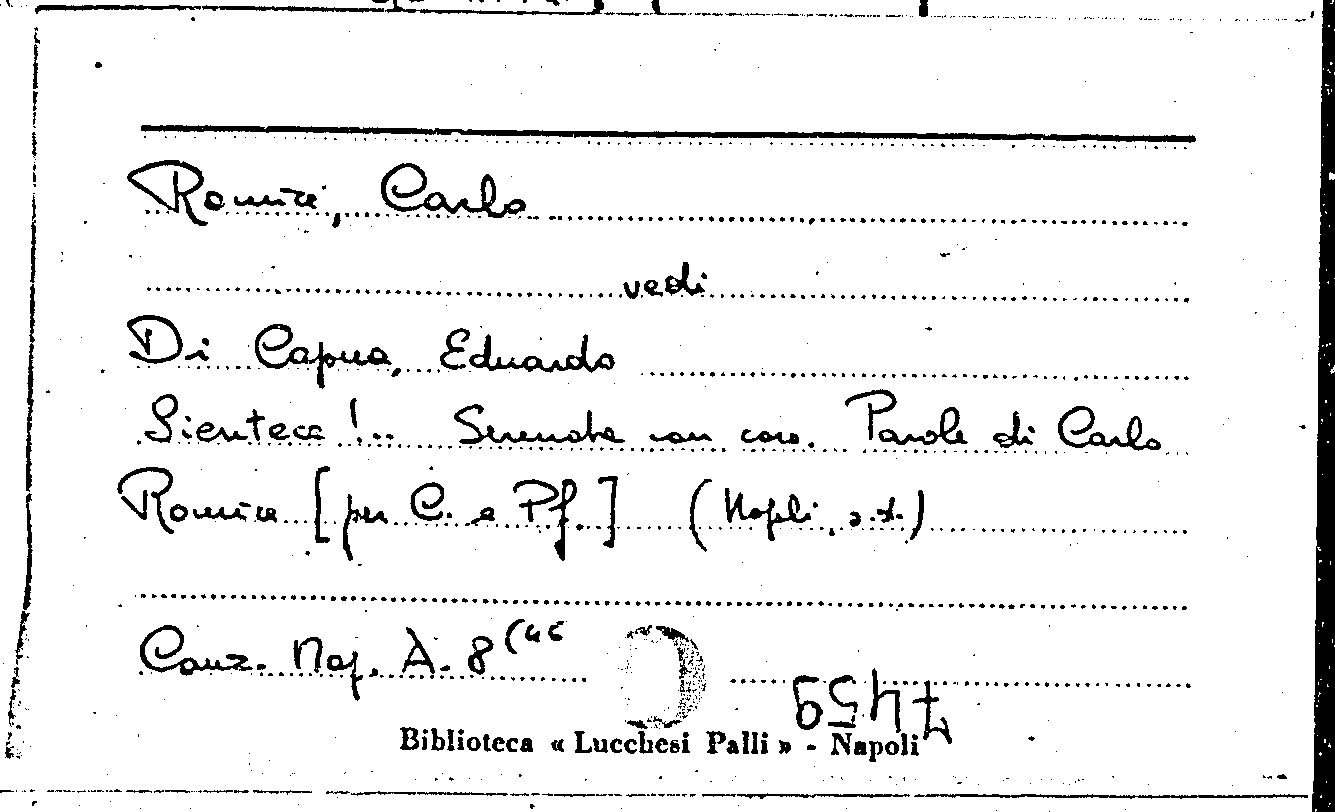 Romice, Carlo
vedi
Di Capua, Eduardo
Sientece !.. Serenata con coro. Parole di Carlo
Romice [per C. e Pf.] (Napoli, s.d.)
Canz. Nap. A. 8 (46
7459
Biblioteca « Lucchesi Palli » - Napoli